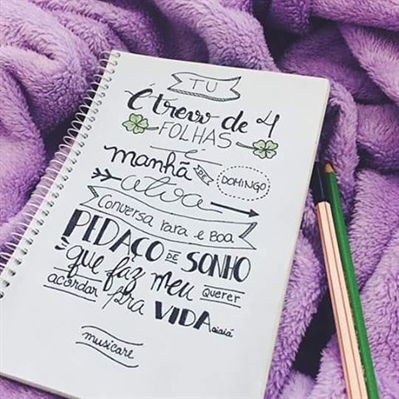 TU
É trevo de 4
FOLHAS
É
manhã DE DOMINGO
atoa
Conversa rara e Boa
PEDAÇO DE SONHO
que faz meu querer
acordar pra VIDA aiaiá
musicare